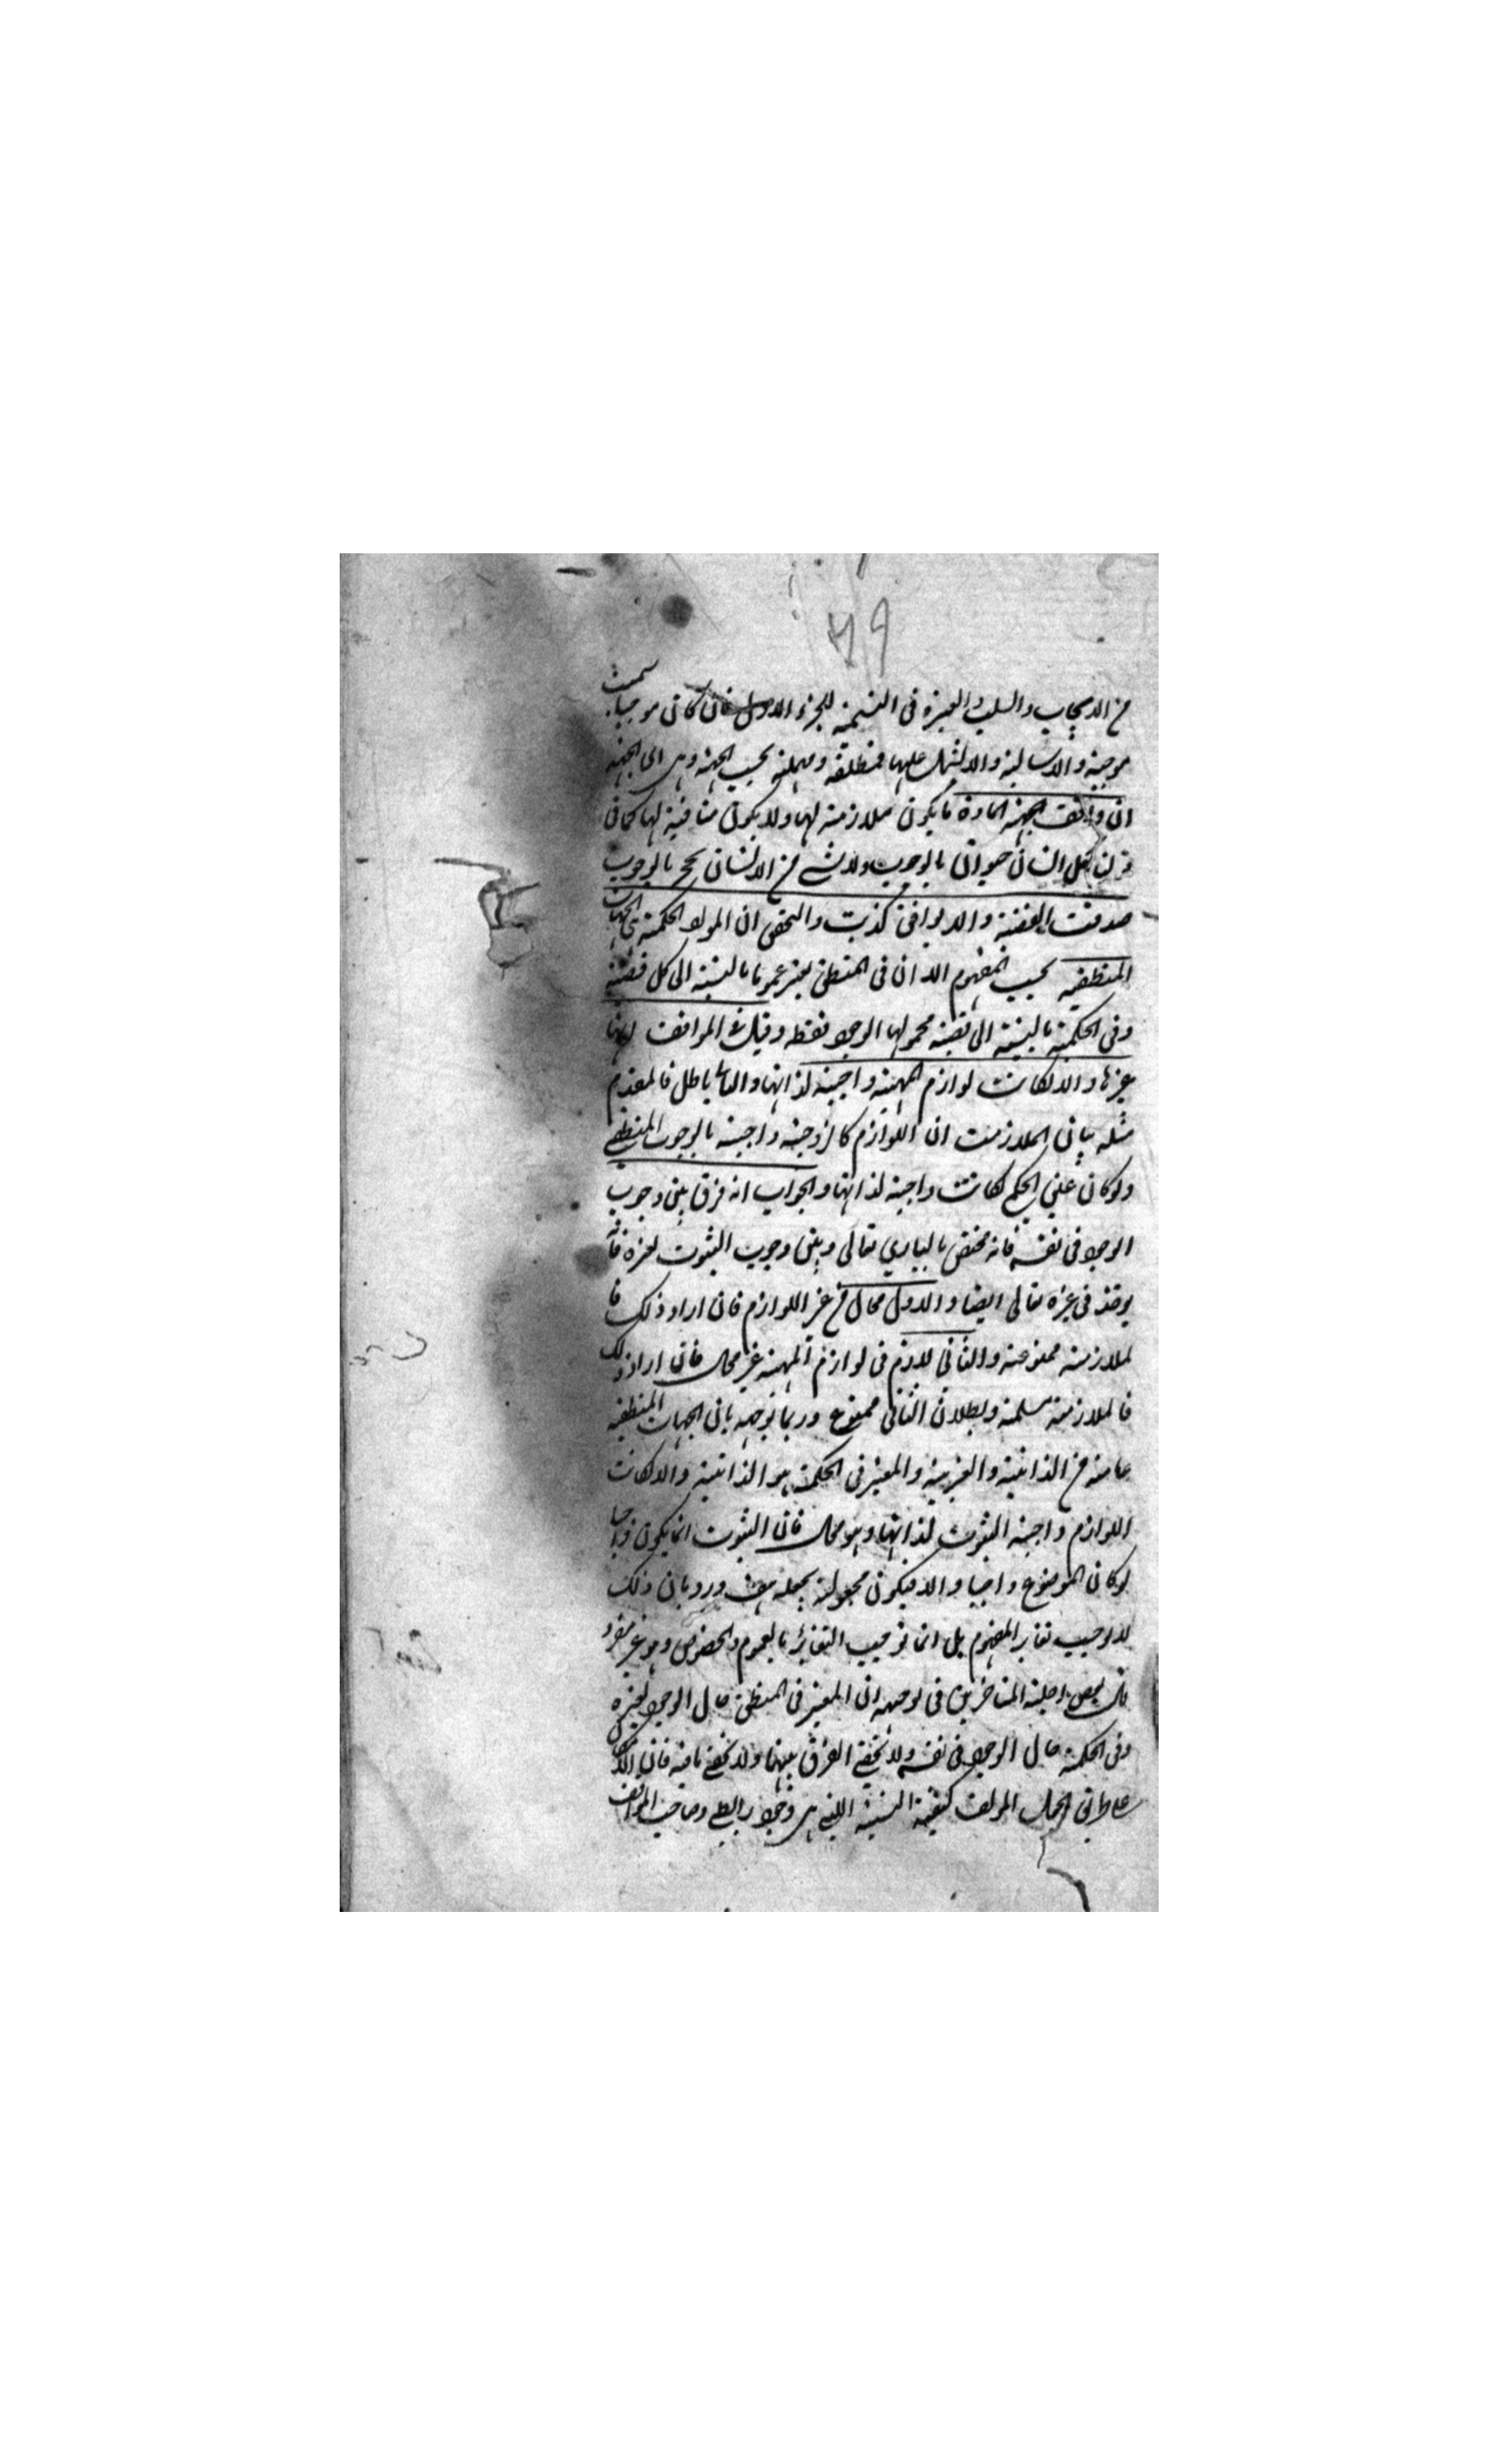 ٤٩
من الايجاب والسلب والعبرة فى التسمية للجزء الاول فان كان موجبا سميت
موجبة والا سالبة والا لم يشتمل عليها فمطلقة ومهملة بحسب الجهة وهى اى الجهة
ان وافقت الجهة المادة بان يكون ملازمة لها ولا يكون منافية لها كما فى
قولنا كل انسان حيوان بالوجوب ولا شى من الانسان بحجر بالوجوب
صدقت القضية والا يوافق كذبت والتحقيق ان المواد الحكمية هى الجهات
المنطقية بحسب المفهوم الا ان فى المنطق يعتبر عمومًا بالنسبة الى كل قضية
وفى الحكمية بالنسبة الى قضية محمولها الوجود فقط وقيل فى المواقف انها
غيرها والا لكانت لوازم المهية واجبة لذاتها والتالى باطل فالمقدم
مثله بيان الملازمة ان اللوازم كالزوجية واجبة بالوجوب المنطقى
ولو كان عين الحكمى لكانت واجبة لذاتها والجواب انه فرق بين وجوب
الوجود فى نفسه فانه مختص بالبارى تعالى وبين وجوب الثبوت لغيره فانه
يوجد فى غيره تعالى ايضا والاول محال فى غير اللوازم فان اراد ذلك فا
لملازمة ممنوعة والثانى لازم فى لوازم المهية غير محال فان اراد ذلك
فالملازمة مسلمة وبطلان الثانى ممنوع وربما توجه بان الجهات المنطقية
عامة من الذاتية والغيرية والمعتبر فى الحكمة هو الذاتية والا لكانت
اللوازم واجبة الثبوت لذاتها وهو محال فان الثبوت انما يكون واجبا
لو كان الموضوع واجبا والا فيكون مجعولة بجعله هف ورد بان ذلك
لا يوجب تغاير المفهوم بل انما يوجب التغاير بالعموم والخصوص وهو غير مضر
قال بعض اجلة المتأخرين فى توجيهه ان المعتبر فى المنطق حال الوجود لغيره
وفى الحكمة حال الوجود فى نفسه ولا يخفى الفرق بينهما ولا يخفى ما فيه فان
المواد كيفية النسبة التى هى وجود رابطى وصاحب المواقف